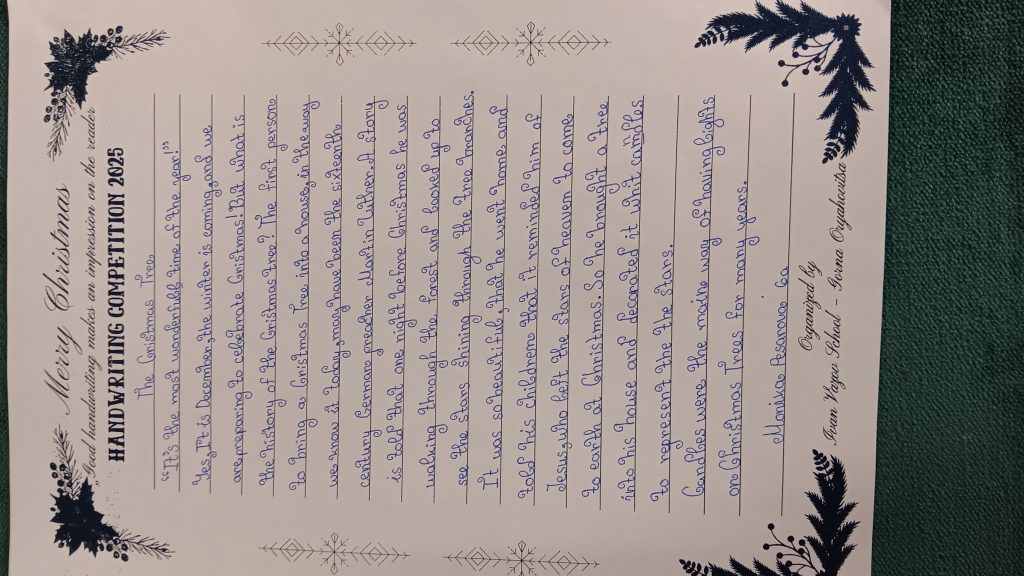 Merry Christmas
"Good handwriting makes an impression on the reader
HANDWRITING COMPETITION 2025
The Cristmas Tree
"It's the most wonderfull time of the year!"
Yes, It is December, the winter is coming, and we
are preparing to celebrate Cristmas! But what is
the history of the Cristmas tree? The first person
to bring a Cristmas Tree into a house, in the way
we know it today, may have been the sixteenth
century German preacher Martin Luther. A story
is told that one night before Christmas he was
walking through the forest and looked up to
see the stars shining through the tree branches.
It was so beautiful, that he went home and
told his children that it reminded him of
Jesus, who left the stars of heaven to come
to earth at Christmas. So he brought a tree
into his house and decorated it whit candles
to represent the the stars.
Candles were the madne way of having lights
on Christmas Trees for many years.
Monika 6a
Organized by
Ivan Vazov School - Gorna Oryahovitsa